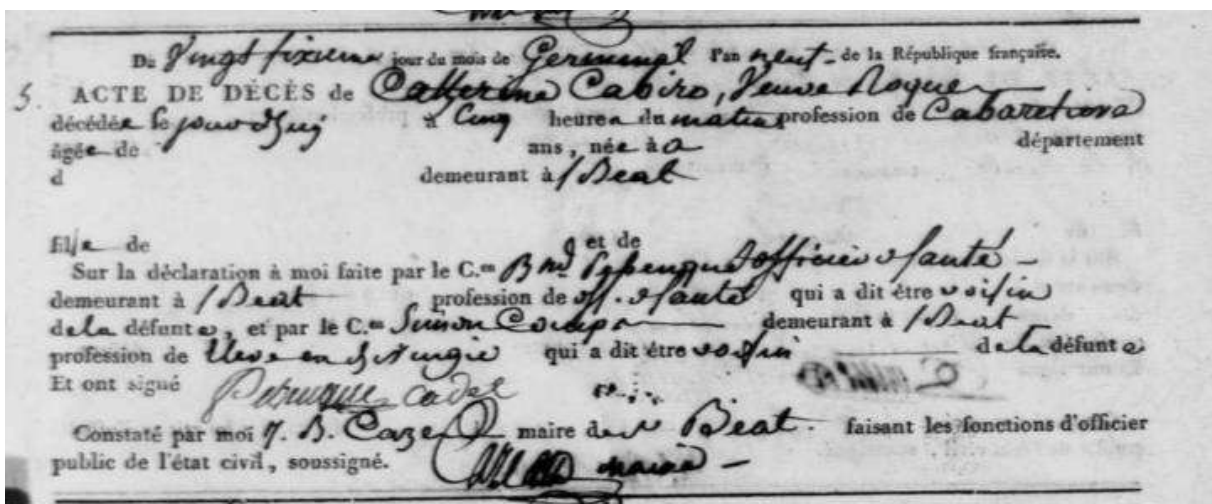 Du Vingt sixieme jour du mois de Germinal l'an neuf de la République française.
5. ACTE DE DÉCÈS de Catherine Cabiro, Veuve Roque
décédée le jour d'huy à Cinq heures du matin profession de Cabaretiere
âgée de ans, née à a département
d demeurant à St Beat
fille de et de
Sur la déclaration à moi faite par le C.en officier de santé
demeurant à St Beat profession de off. de santé qui a dit être voisin
de la défunte, et par le C.en Simon Comps demeurant à St Beat
profession de Eleve en chirurgie qui a dit être voisin de la défunte
Et ont signé cadet
Constaté par moi J. B. Caze maire de St Beat. faisant les fonctions d'officier
public de l'état civil, soussigné. maire